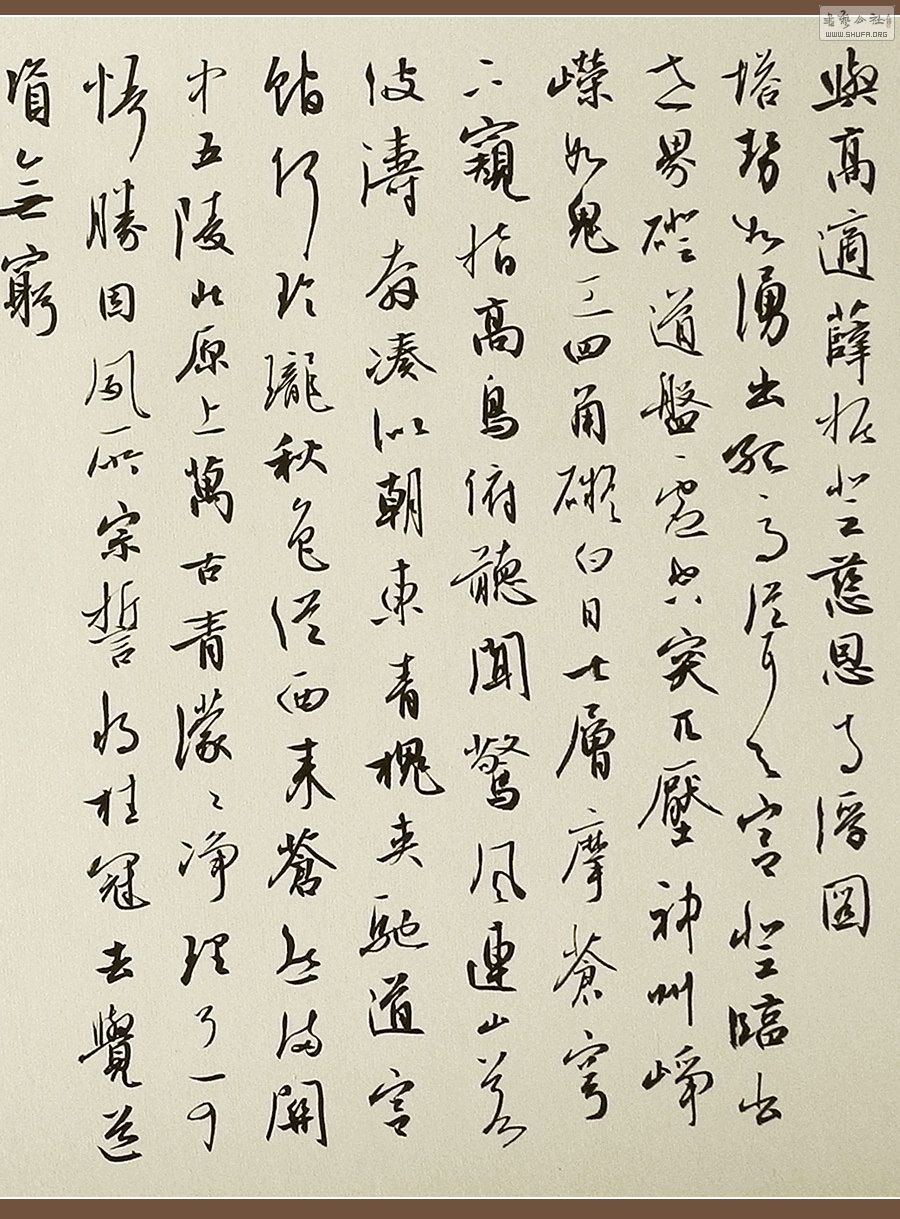 與高適薛據登慈恩寺浮圖
塔勢如湧出孤高聳天宮登臨出
世界磴道盤虛空突兀壓神州崢
嶸如鬼工四角礙白日七層摩蒼穹
下窺指高鳥俯聽聞驚風連山若
波濤奔湊似朝東青槐夾馳道宮
館何玲瓏秋色從西來蒼然滿關
中五陵北原上萬古青濛〻淨理了可
悟勝因夙所宗誓將挂冠去覺道
資無窮
書藝公社
WWW.SHUFA.ORG